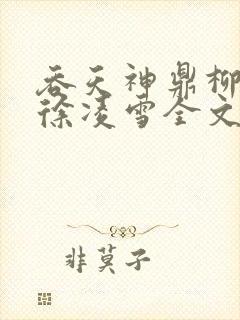 吞天神鼎柳
徐凌雪全文
非莫子